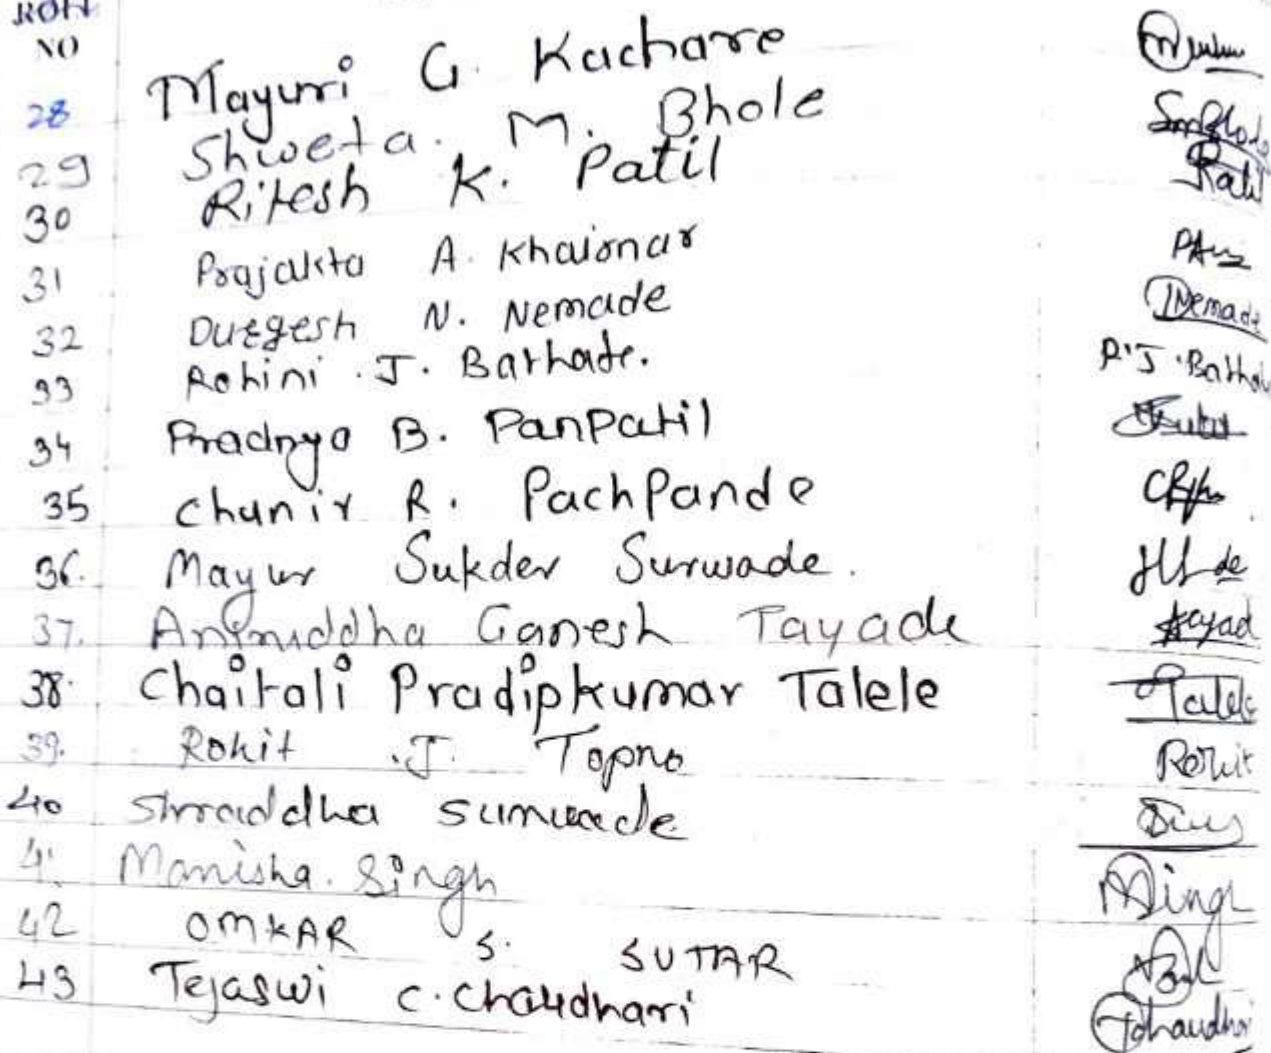 ROLL
NO
28 Mayuri G. Kachare
29 Shweta. M. Bhole SmBhole
30 Ritesh K. Patil Patil
31 Prajakta A. Khairnar
32 Durgesh N. Nemade DNemade
33 Rohini . J. Barhate. R.J.Barhate
34 Pradnya B. Panpatil
35 R. Pachpande
36. Mayur Sukdev Surwade.
37. Aniruddha Ganesh Tayade
38. Chaitali Pradipkumar Talele Talele
39. Rohit .J. Topno Rohit
40 Shraddha Surwade
41. Manisha. Singh MSingh
42 OMKAR S. SUTAR
43 Tejaswi C. Chaudhari TChaudhari